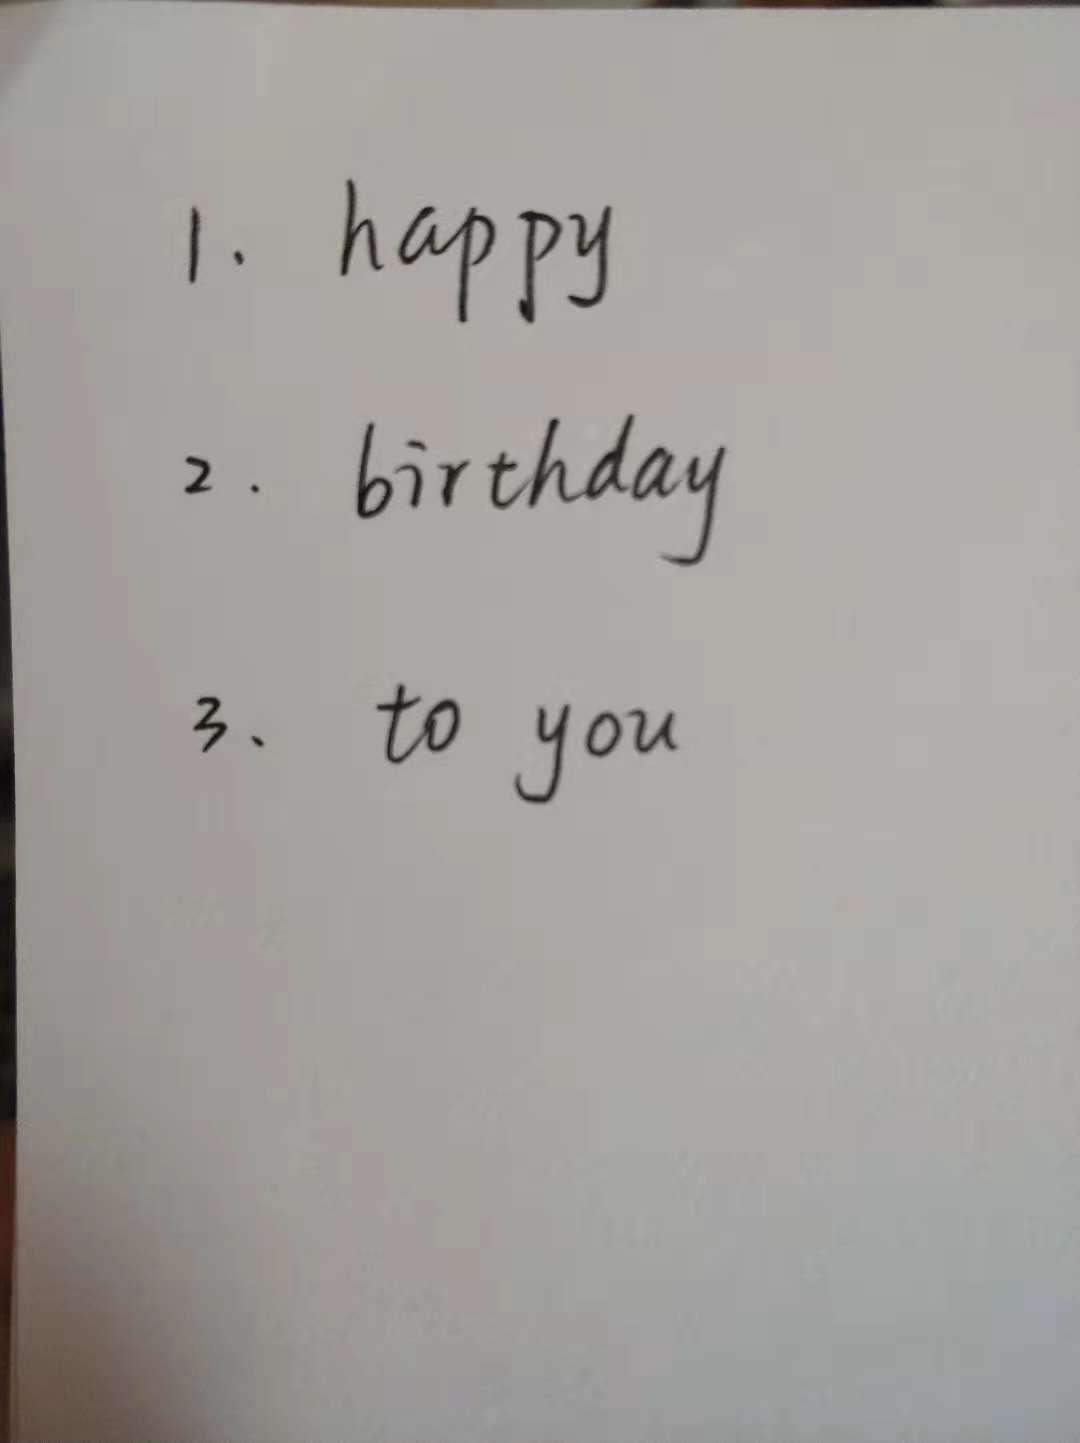 1. happy
2. birthday
3. to you